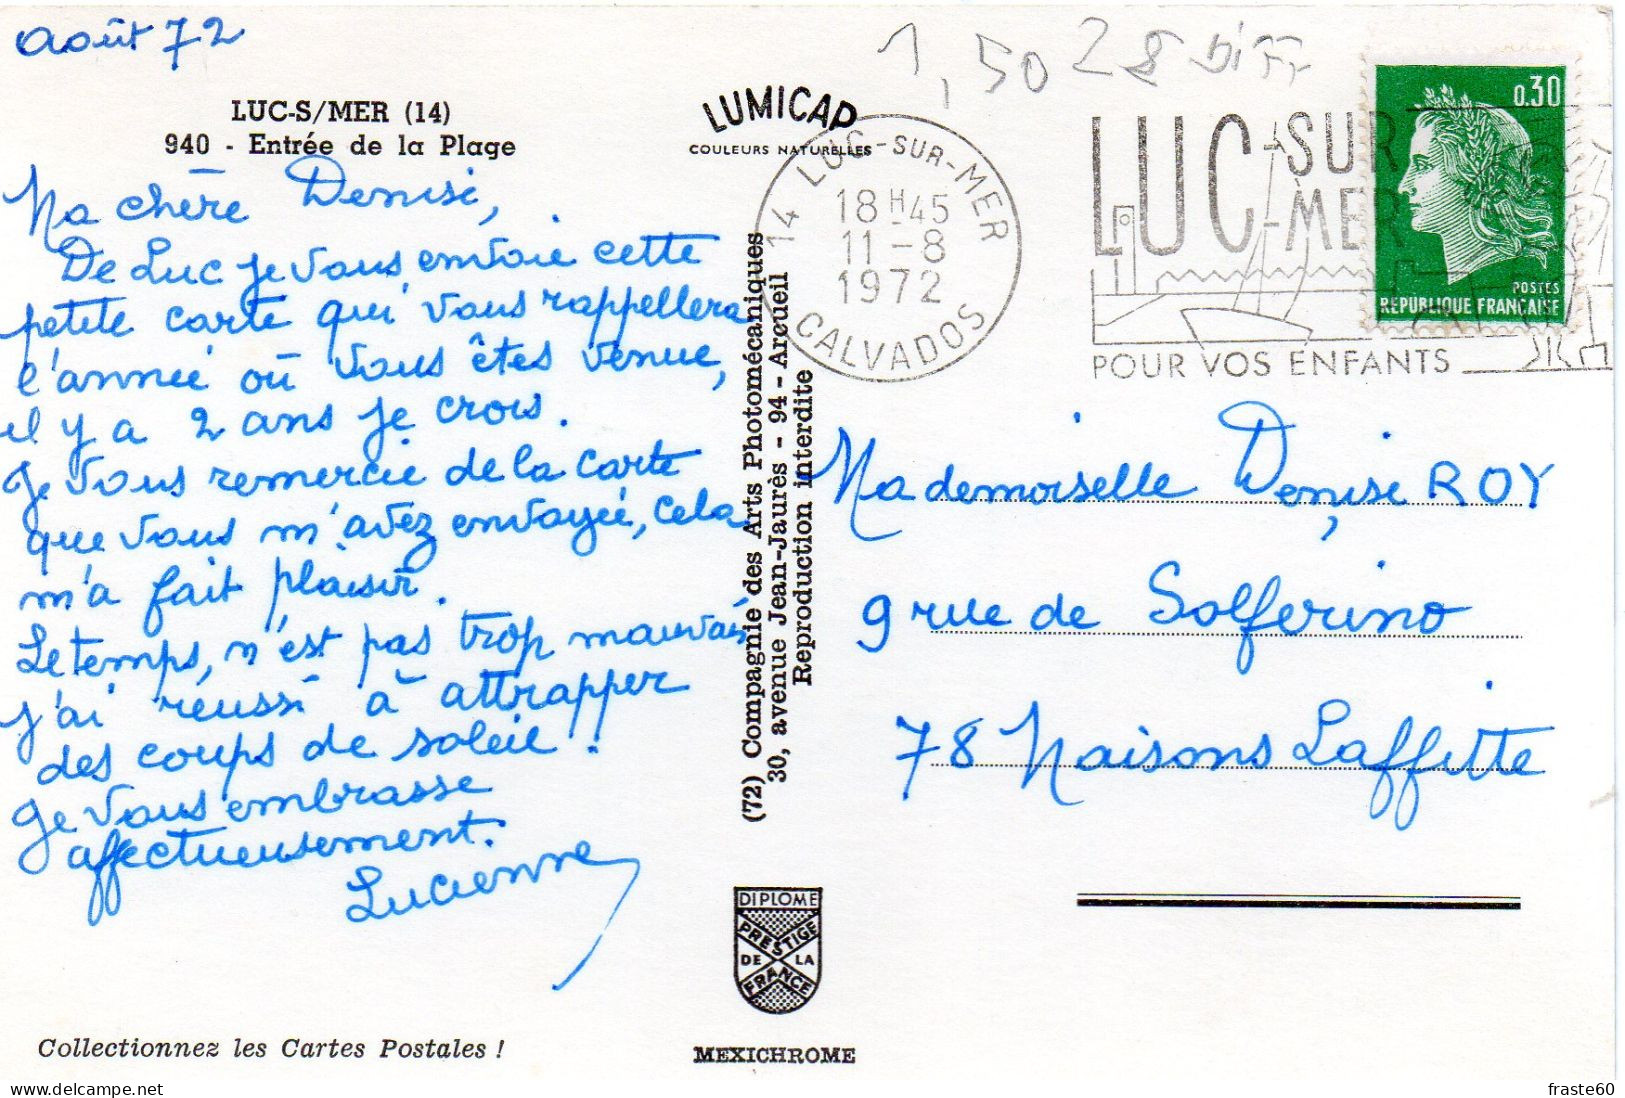 Août 72
LUC-S/MER (14)
940 - Entrée de la Plage
Ma chère Denise,
De Luc je vous envoie cette
petite carte qui vous rappellera
l'année où vous êtes venue,
il y a 2 ans je crois.
Je vous remercie de la carte
que vous m'avez envoyée, cela
m'a fait plaisir.
Le temps, n'est pas trop mauvais
j'ai réussi à attrapper
des coups de soleil !
Je vous embrasse
affectueusement.
Lucienne
Collectionnez les Cartes Postales !
LUMICAP
COULEURS NATURELLES
(72) Compagnie des Arts Photomécaniques
30, avenue Jean-Jaurès - 94 - Arcueil
Reproduction interdite
DIPLOME
PRESTIGE
DE LA
FRANCE
MEXICHROME
1,50 28 Diff
14 LUC-SUR-MER
18 H 45
11-8
1972
CALVADOS
LUC-SUR
-MER
POUR VOS ENFANTS
0.30
POSTES
REPUBLIQUE FRANÇAISE
Mademoiselle Denise ROY
9 rue de Solferino
78 Maisons Laffitte
www.delcampe.net
fraste60